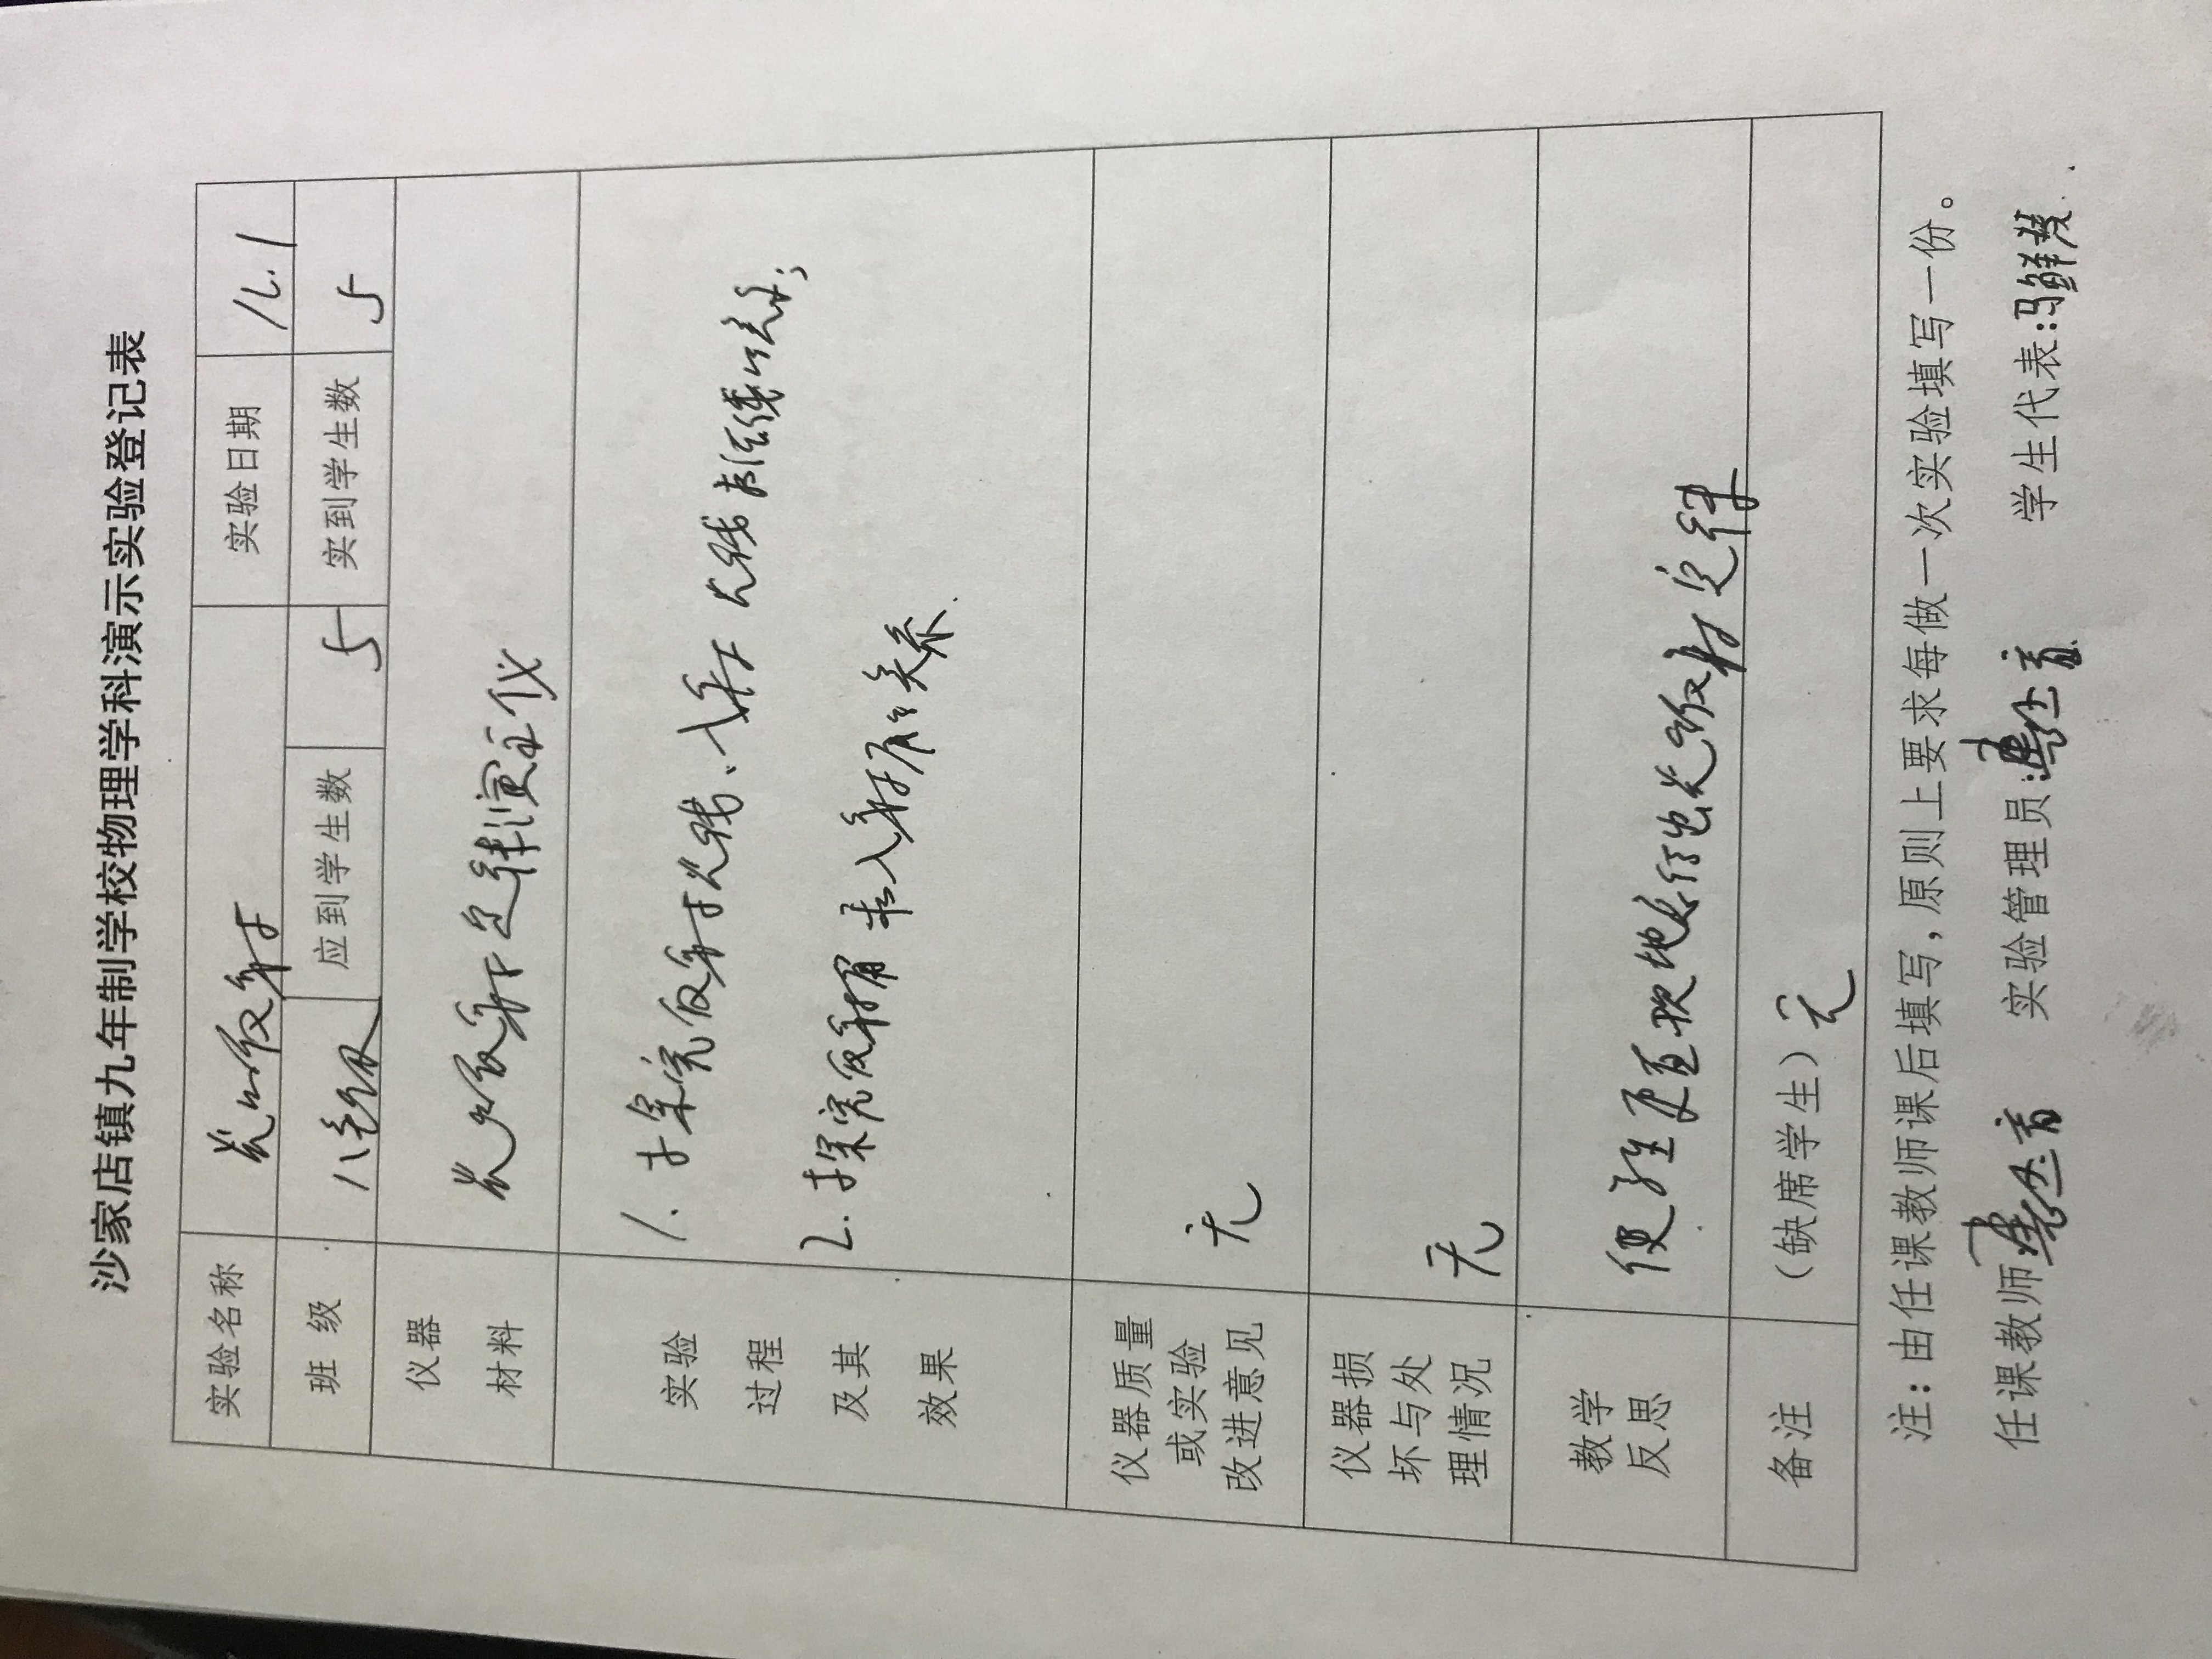 沙家店镇九年制学校物理学科演示实验登记表
实验名称 光的反射 实验日期 12.1
班 级 八年级 应到学生数 5 实到学生数 5
仪器
材料
光的反射定律演示仪
实验
过程
及其
效果
1. 探究反射光线、入射光线和法线的关系;
2. 探究反射角和入射角的关系.
仪器质量
或实验
改进意见
无
仪器损
坏与处
理情况
无
教学
反思
使学生更直观地得出光的反射定律
备注 (缺席学生) 无
注:由任课教师课后填写,原则上要求每做一次实验填写一份。
任课教师 实验管理员: 学生代表:冯